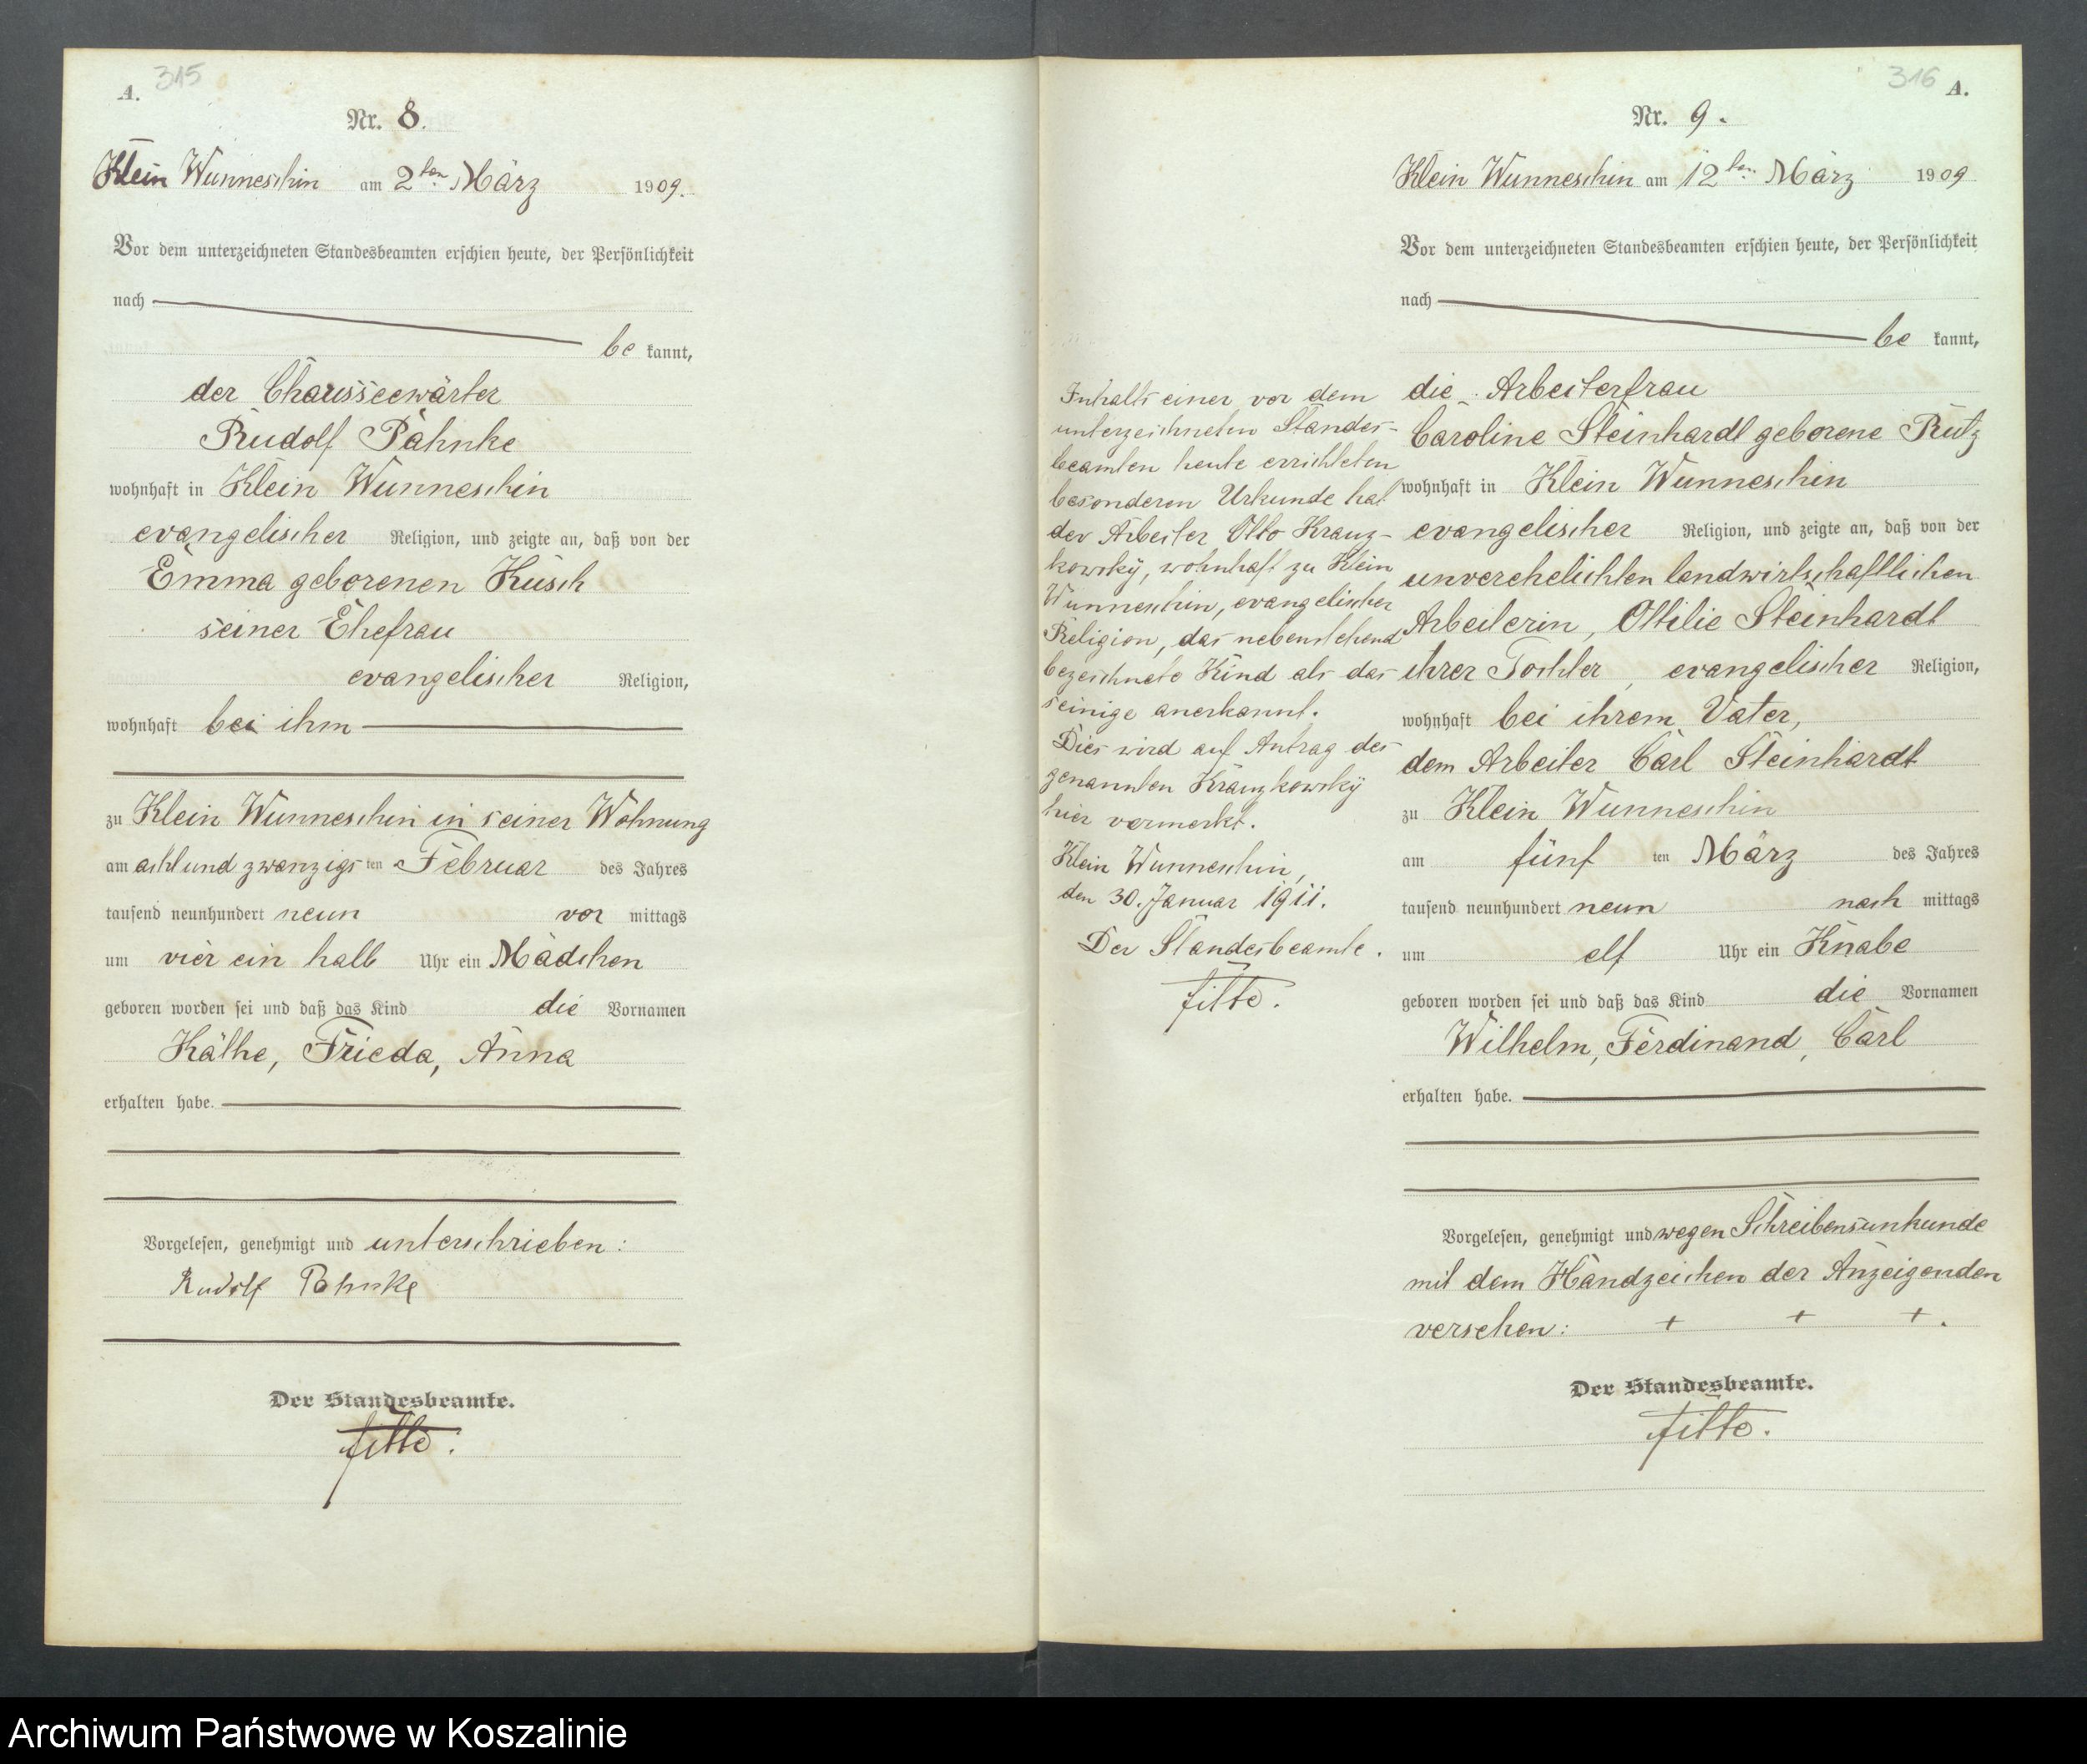 A. 315
Nr. 8.
Klein Wunneschin am 2ten März 1909.
Vor dem unterzeichneten Standesbeamten erschien heute, der Persönlichkeit
nach
be kannt,
der Chausseewärter
Rudolf Pahnke
wohnhaft in Klein Wunneschin
evangelischer Religion, und zeigte an, daß von der
Emma geborenen Kusch
seiner Ehefrau
evangelischer Religion,
wohnhaft bei ihm
zu Klein Wunneschin in seiner Wohnung
am acht und zwanzigs ten Februar des Jahres
tausend neunhundert neun vor mittags
um vier ein halb Uhr ein Mädchen
geboren worden sei und daß das Kind die Vornamen
Käthe, Frieda, Anna
erhalten habe.
Vorgelesen, genehmigt und unterschrieben:
Rudolf Pahnke
Der Standesbeamte.
Fitte.
316 A.
Nr. 9.
Klein Wunneschin am 12ten März 1909
Vor dem unterzeichneten Standesbeamten erschien heute, der Persönlichkeit
nach
be kannt,
die Arbeiterfrau
Caroline Steinhardt geborene Rutz
wohnhaft in Klein Wunneschin
evangelischer Religion, und zeigte an, daß von der
unverehelichten landwirtschaftlichen
Arbeiterin, Ottilie Steinhardt
ihrer Tochter, evangelischer Religion,
wohnhaft bei ihrem Vater,
dem Arbeiter Carl Steinhardt
zu Klein Wunneschin
am fünf ten März des Jahres
tausend neunhundert neun nach mittags
um elf Uhr ein Knabe
geboren worden sei und daß das Kind die Vornamen
Wilhelm, Ferdinand, Carl
erhalten habe.
Vorgelesen, genehmigt und wegen Schreibensunkunde
mit dem Handzeichen der Anzeigenden
versehen: + + +.
Der Standesbeamte.
Fitte.
Inhalts einer vor dem
unterzeichneten Standes-
beamten heute errichteten
besonderen Urkunde hat
der Arbeiter Otto Kranz-
kowsky, wohnhaft zu Klein
Wunneschin, evangelischer
Religion, das nebenstehend
bezeichnete Kind als das
seinige anerkannt.
Dies wird auf Antrag des
genannten Kranzkowsky
hier vermerkt.
Klein Wunneschin,
den 30. Januar 1911.
Der Standesbeamte.
Fitte.
Archiwum Państwowe w Koszalinie